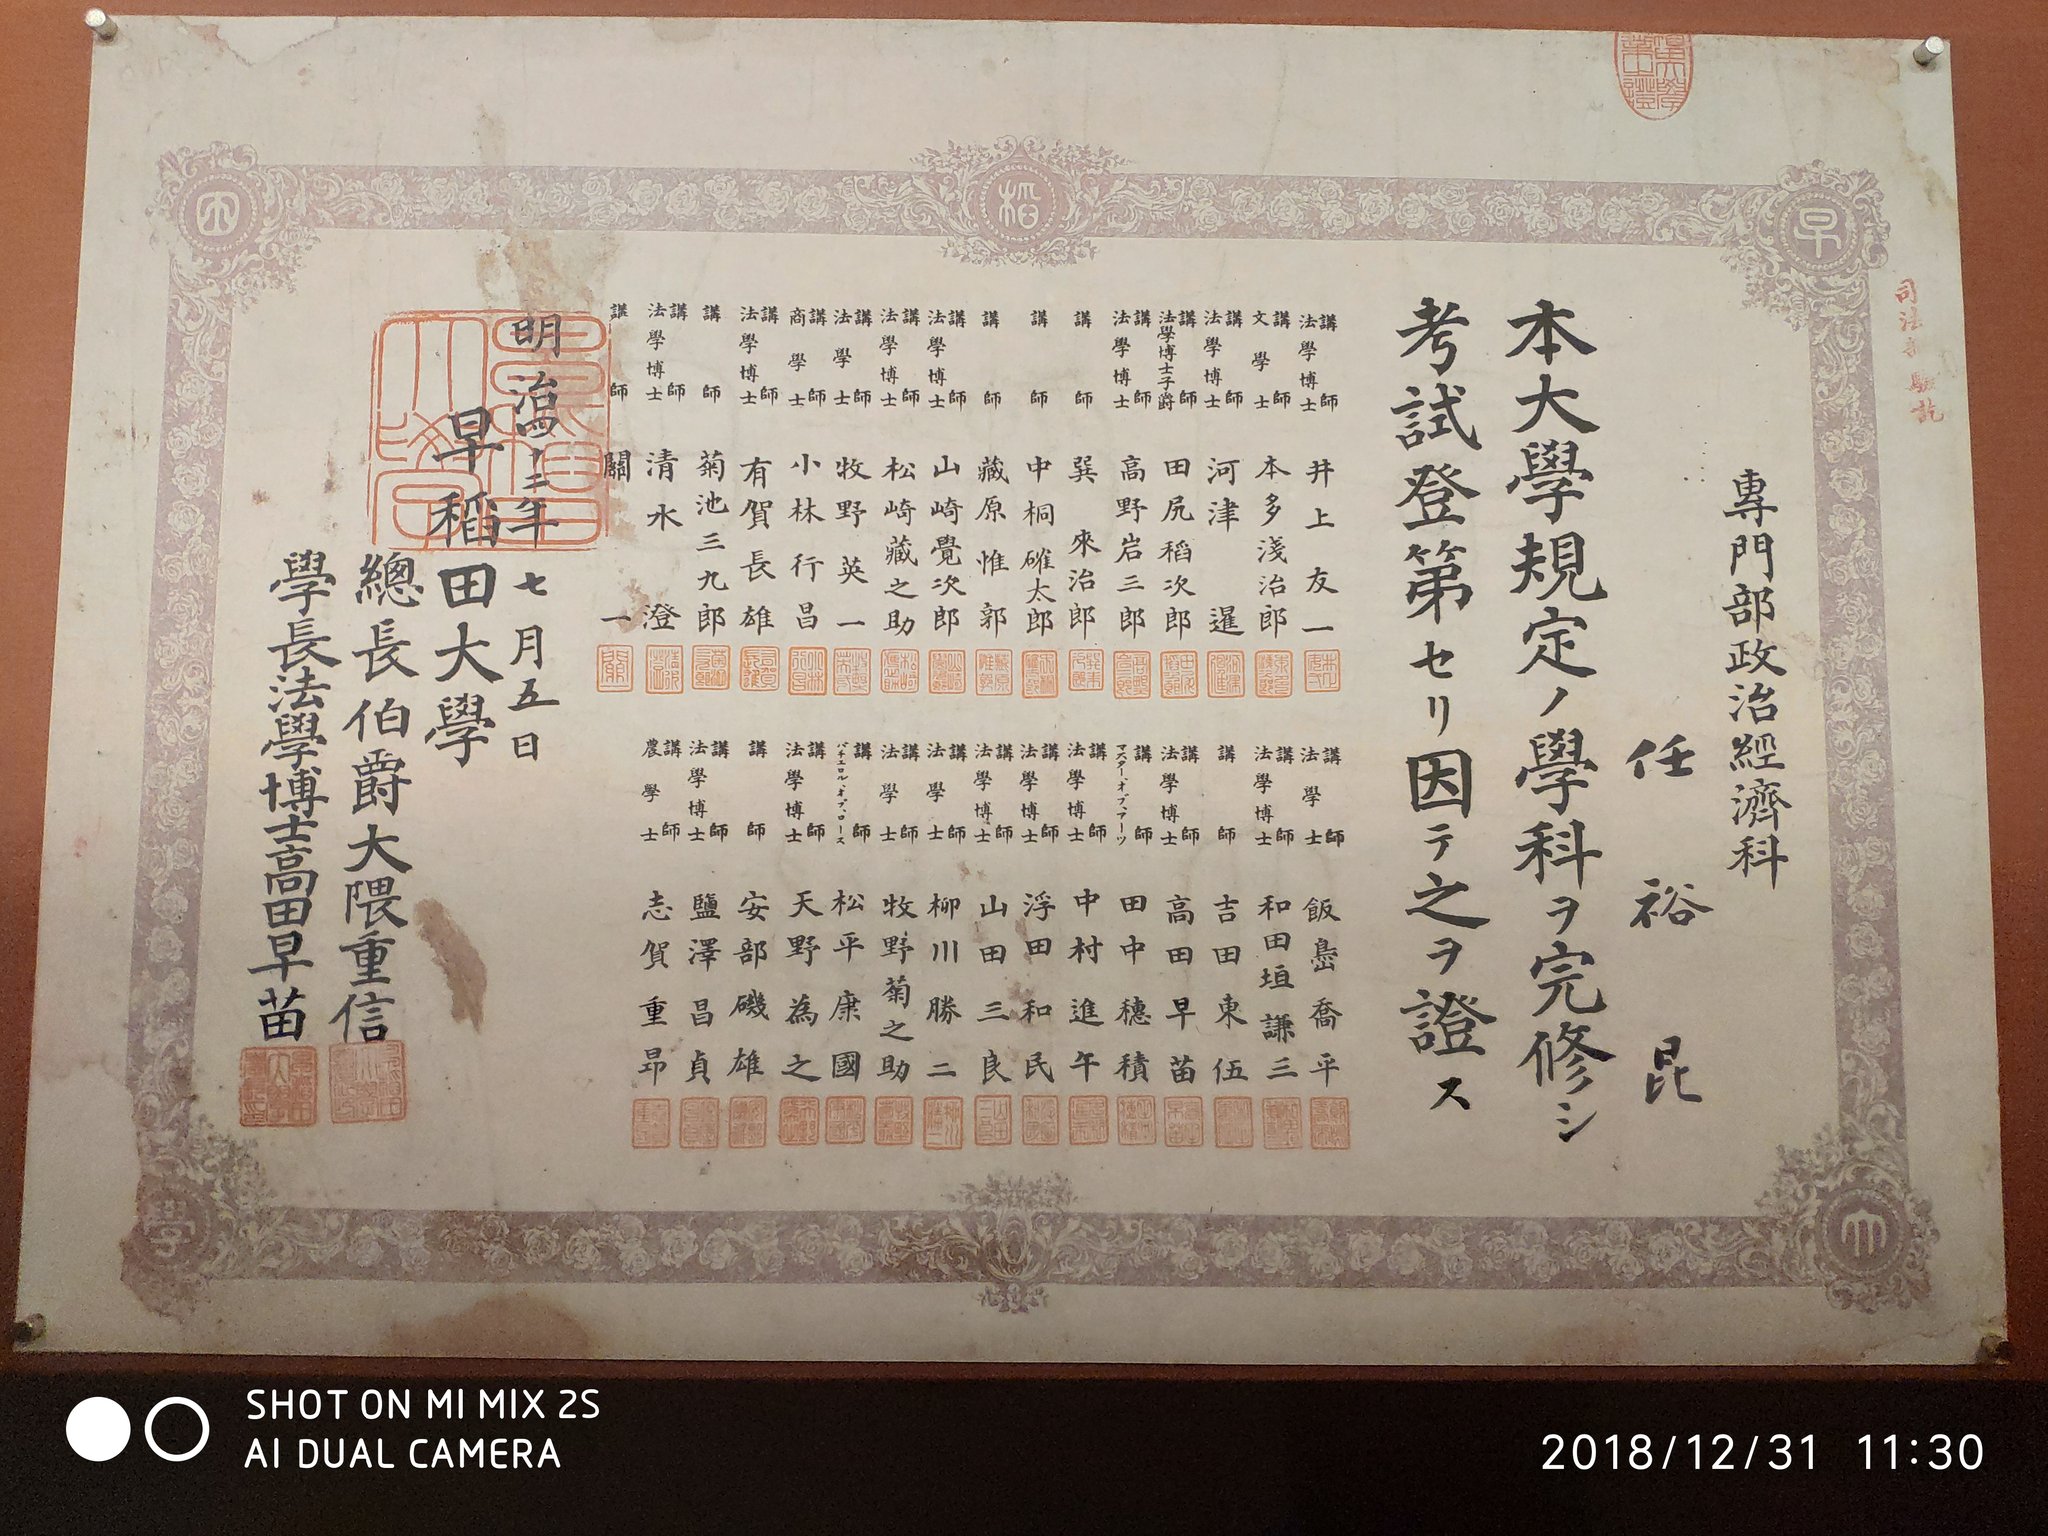 專門部政治經濟科
任裕昆
本大學規定ノ學科ヲ完修シ
考試登第セリ因テ之ヲ證ス
講師 法學博士 井上友一
講師 文學士 本多淺治郎
講師 法學博士 河津暹
講師 法學博士子爵 田尻稻次郎
講師 法學博士 高野岩三郎
講師 巽來治郎
講師 中桐確太郎
講師 藏原惟郭
講師 法學博士 山崎覺次郎
講師 法學博士 松崎藏之助
講師 法學士 牧野英一
講師 商學士 小林行昌
講師 法學博士 有賀長雄
講師 菊池三九郎
講師 法學博士 清水澄
講師 關一
講師 法學士 飯島喬平
講師 法學博士 和田垣謙三
講師 吉田東伍
講師 法學博士 高田早苗
講師 マスター、オブ、アーツ 田中穗積
講師 法學博士 中村進午
講師 法學博士 浮田和民
講師 法學博士 山田三良
講師 法學士 柳川勝二
講師 法學士 牧野菊之助
講師 バチエロル、オブ、ロース 松平康國
講師 法學博士 天野為之
講師 安部磯雄
講師 法學博士 鹽澤昌貞
講師 農學士 志賀重昂
明治四十二年七月五日
早稻田大學
總長伯爵大隈重信
學長法學博士高田早苗
早
稻
田
大
學
SHOT ON MI MIX 2S
AI DUAL CAMERA
2018/12/31 11:30